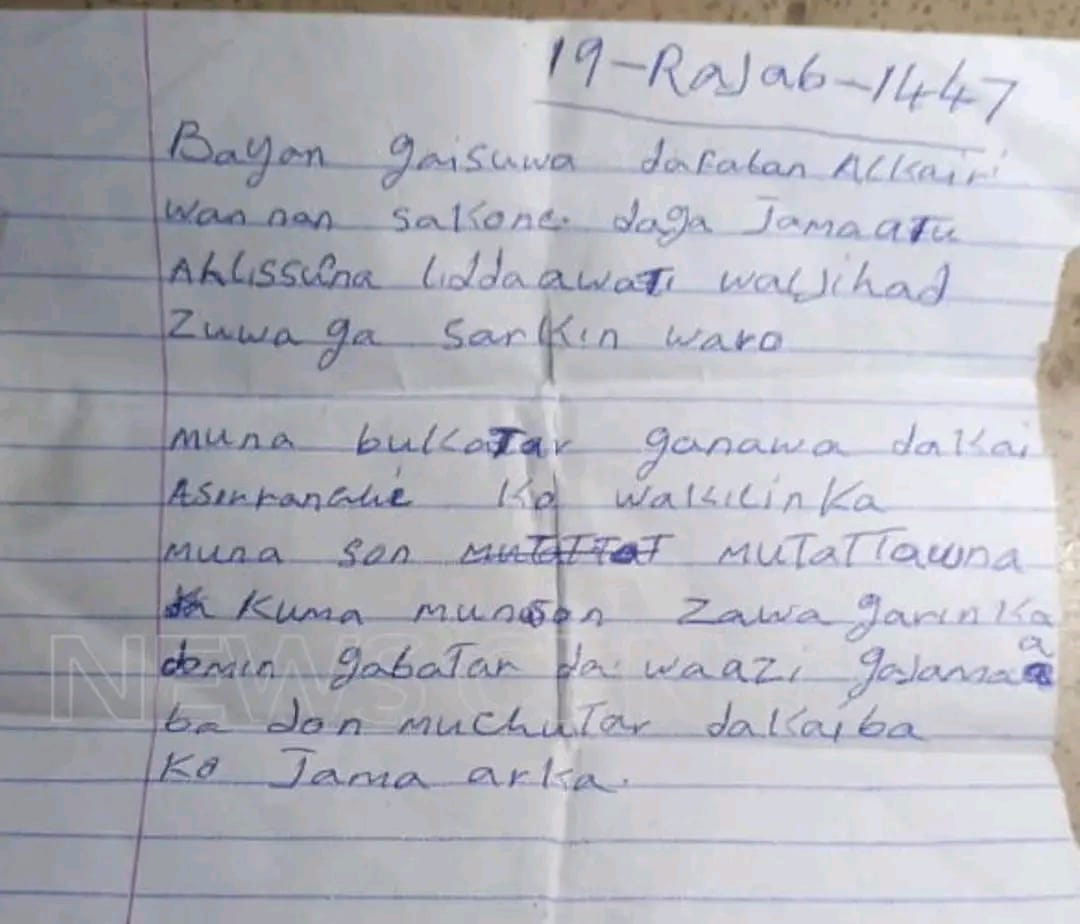 19-Rajab-1447
Bayan gaisuwa dafatan Alkairi
wan nan sakone daga Jamaatu
Ahlissunna liddaawati waljihad
Zuwa ga Sarkin waro
muna bukatar ganawa dakai
Asirrance Ko wakilinka
muna son mutattat mutattawna
Kuma munason zawa garinka
domin gabatar da waazi gajamaa
ba don muchutar dakaiba
Ko Jama arka.
NEWS